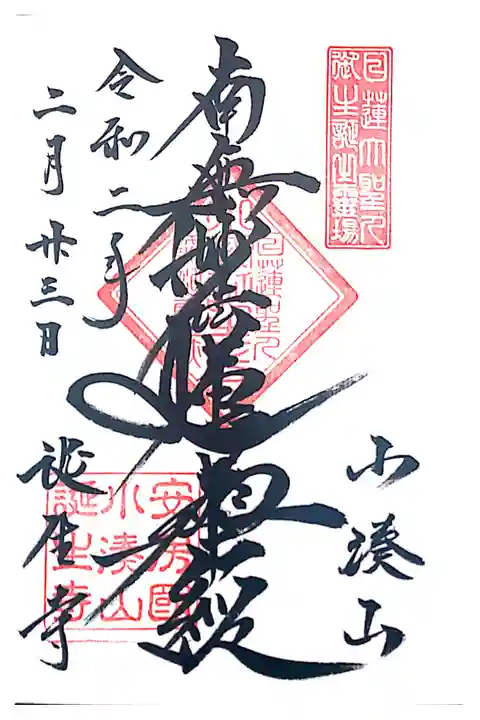 日蓮大聖人
御生誕生霊場
小湊山
南無妙法蓮華経
令和二年
二月廿三日
誕生寺
安房国
小湊山
誕生寺